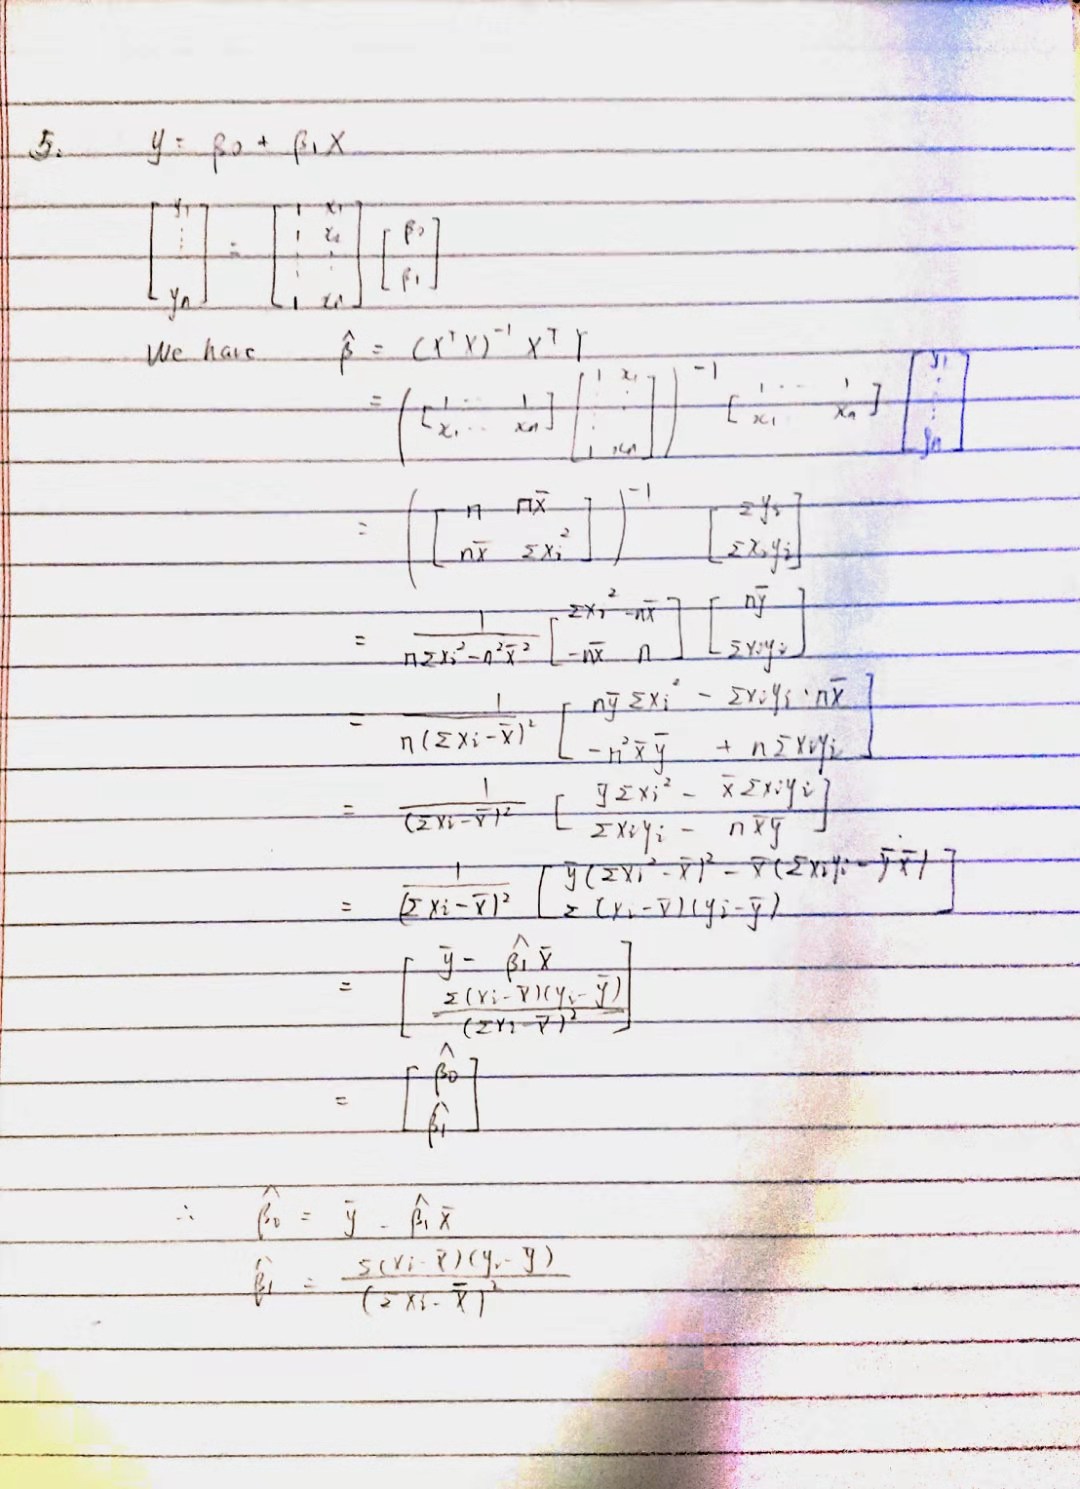 5. y = β0 + β1 X
[y1 ⋮ yn] = [1 x1 1 x2 ⋮ ⋮ 1 xn] [β0 β1]
We have β̂ = (XᵀX)⁻¹ Xᵀ Y
= ([1 ⋯ 1 x1 ⋯ xn] [1 x1 ⋮ ⋮ 1 xn])⁻¹ [1 ⋯ 1 x1 xn] [y1 ⋮ yn]
= ([n nx̄ nx̄ Σxi²])⁻¹ [Σyi Σxiyi]
= 1/(nΣxi² - n²x̄²) [Σxi² -nx̄ -nx̄ n] [nȳ Σxiyi]
= 1/(n(Σxi - x̄)²) [nȳΣxi² - Σxiyi·nx̄ -n²x̄ȳ + nΣxiyi]
= 1/((Σxi - x̄)²) [ȳΣxi² - x̄Σxiyi Σxiyi - nx̄ȳ]
= 1/((Σxi - x̄)²) [ȳ(Σxi² - x̄)² - x̄(Σxiyi - ȳx̄) Σ(xi - x̄)(yi - ȳ)]
= [ȳ - β̂1x̄ Σ(xi - x̄)(yi - ȳ)/(Σxi - x̄)²]
= [β̂0 β̂1]
∴ β̂0 = ȳ - β̂1 x̄
β̂1 = Σ(xi - x̄)(yi - ȳ)/(Σxi - x̄)²